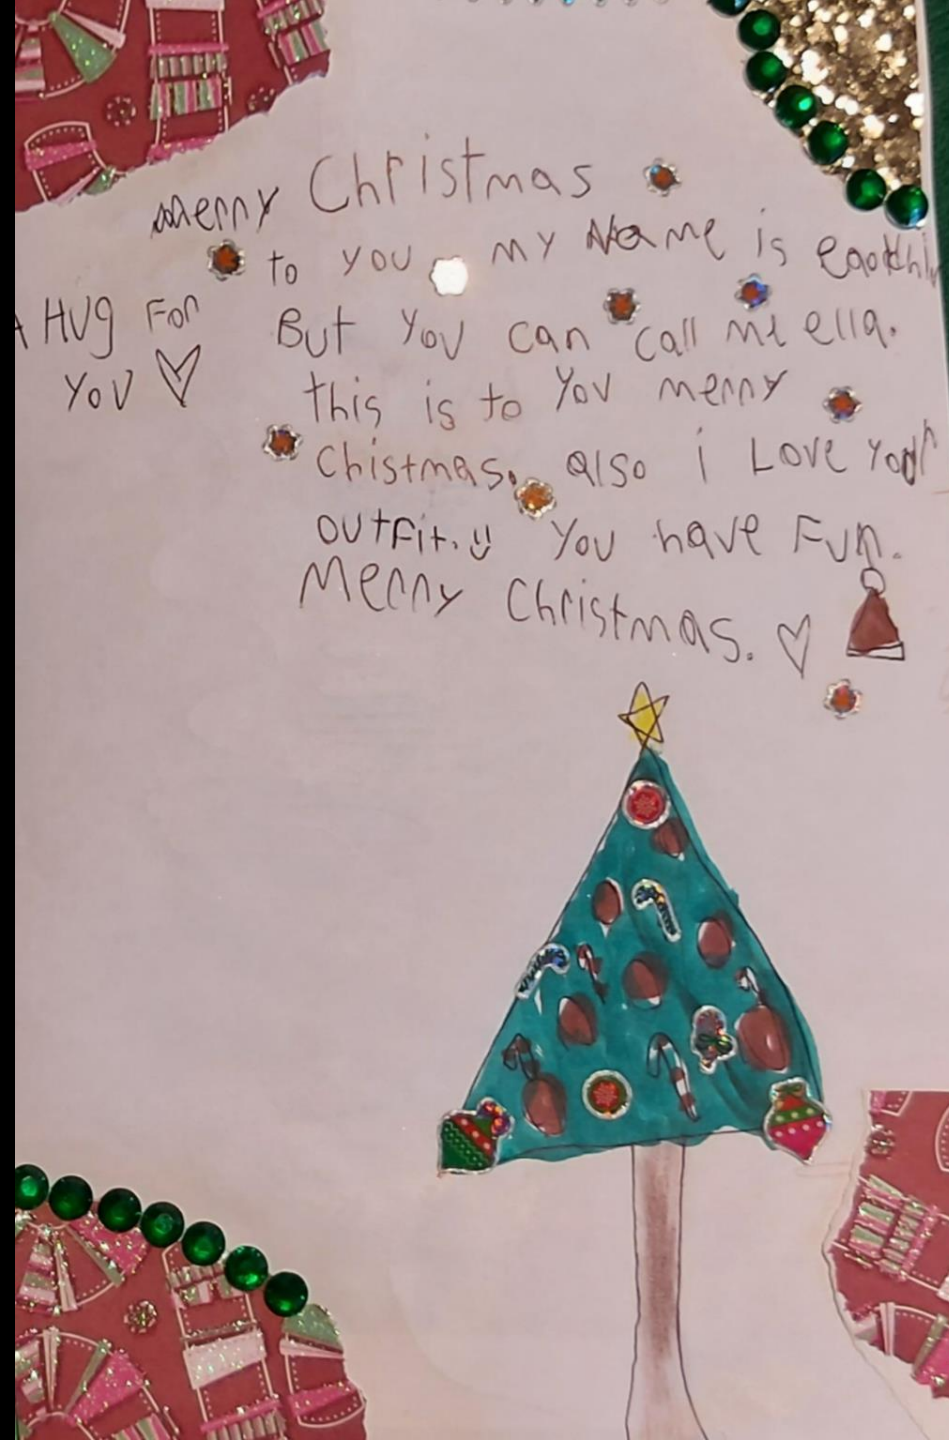 Merry Christmas
to you my Name is
A HUG For
YOU
But You can call me ella.
this is to You merry
Chistmas. also i Love your
outfit. You have Fun.
Merry Christmas.